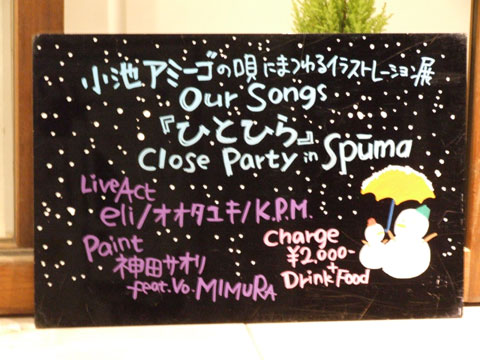 小池アミーゴの唄にまつわるイラストレーション展
Our Songs
『ひとひら』
Close Party in Spūma
LiveAct
eli/オオタユキ/K.P.M.
Paint
神田サオリ
feat.Vo.MIMURA
Charge
¥2,000-
+
Drink Food